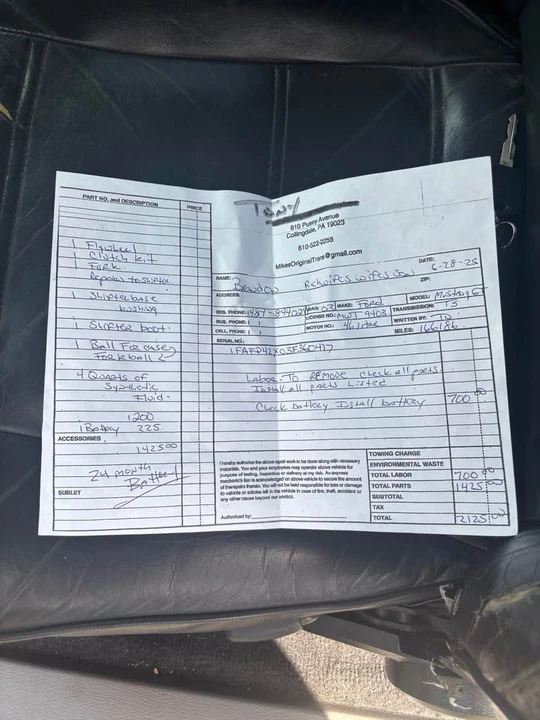 Tony
610 Pusey Avenue
Collingdale, PA 19023
610-522-2255
MikesOriginalTrans@gmail.com
PART NO. and DESCRIPTION PRICE
1 Flywheel
1 Clutch kit
1 Fork
Repair to shifter
Shifter base
bushing
Shifter boot.
1 Ball For case
Fork ball
4 Quarts of
Synthetic
Fluid.
1,200
1 Battery 225.
ACCESSORIES
1425 00
24 month
Battery
SUBLET
DATE: 6-28-25
NAME: Brandon
ADDRESS:
ZIP:
RES. PHONE:
YEAR: 03 MAKE: Ford MODEL: Mustang
BUS. PHONE: ( )
LICENSE NO.: MWT 9403 TRANSMISSION: T5
CELL. PHONE: ( )
MOTOR NO.: 4.6 liter WRITTEN BY:
SERIAL NO.: MILES: 166186
Labor - To REMOVE Check all parts
Install all parts Listed
Check battery Install battery 700 00
I hereby authorize the above repair work to be done along with necessary
materials. You and your employees may operate above vehicle for
purpose of testing, inspection or delivery at my risk. An express
mechanic's lien is acknowledged on above vehicle to secure the amount
of therepairs thereto. You will not be held responsible for loss or damage
to vehicle or articles left in the vehicle in case of fire, theft, accident or
any other cause beyond our control.
Authorized by:
TOWING CHARGE
ENVIRONMENTAL WASTE
TOTAL LABOR 700 00
TOTAL PARTS 1425 00
SUBTOTAL
TAX
TOTAL 2125 00